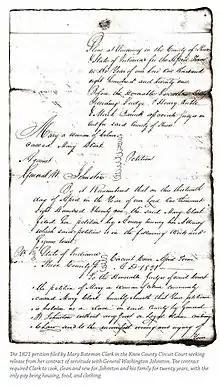 Pleas at Vincennes in the County of Knox
State of Indiana for the April Term
in the Year of our Lord One thousand
eight hundred and twenty one
Before the Honorable
Presiding Judge & Henry Ruble
& Mark Barnett associate judges in
and for said County of Knox
Mary a woman of colour
called Mary Clark
Against
Petition
General W Johnston
Be it Remembered that on the thirteenth
day of April in the Year of our Lord One thousand
eight hundred & twenty one, the said Mary Clark
filed her petition by
which said petition is in the following words and
figures towit
State of Indiana
Knox County
Circuit Court April Term
A D 1821
To the Honorable Judges of said Court
the petition of Mary a woman of colour commonly
called Mary Clark humbly sheweth that your petitioner
is holden as a slave in said County by General
W Johnston without any just or legal
The 1821 petition filed by Mary Bateman Clark in the Knox County Circuit Court seeking
release from her contract of servitude with General Washington Johnston. The contract
required Clark to cook, clean and sew for Johnston and his family for twenty years, with the
only pay being housing, food, and clothing.